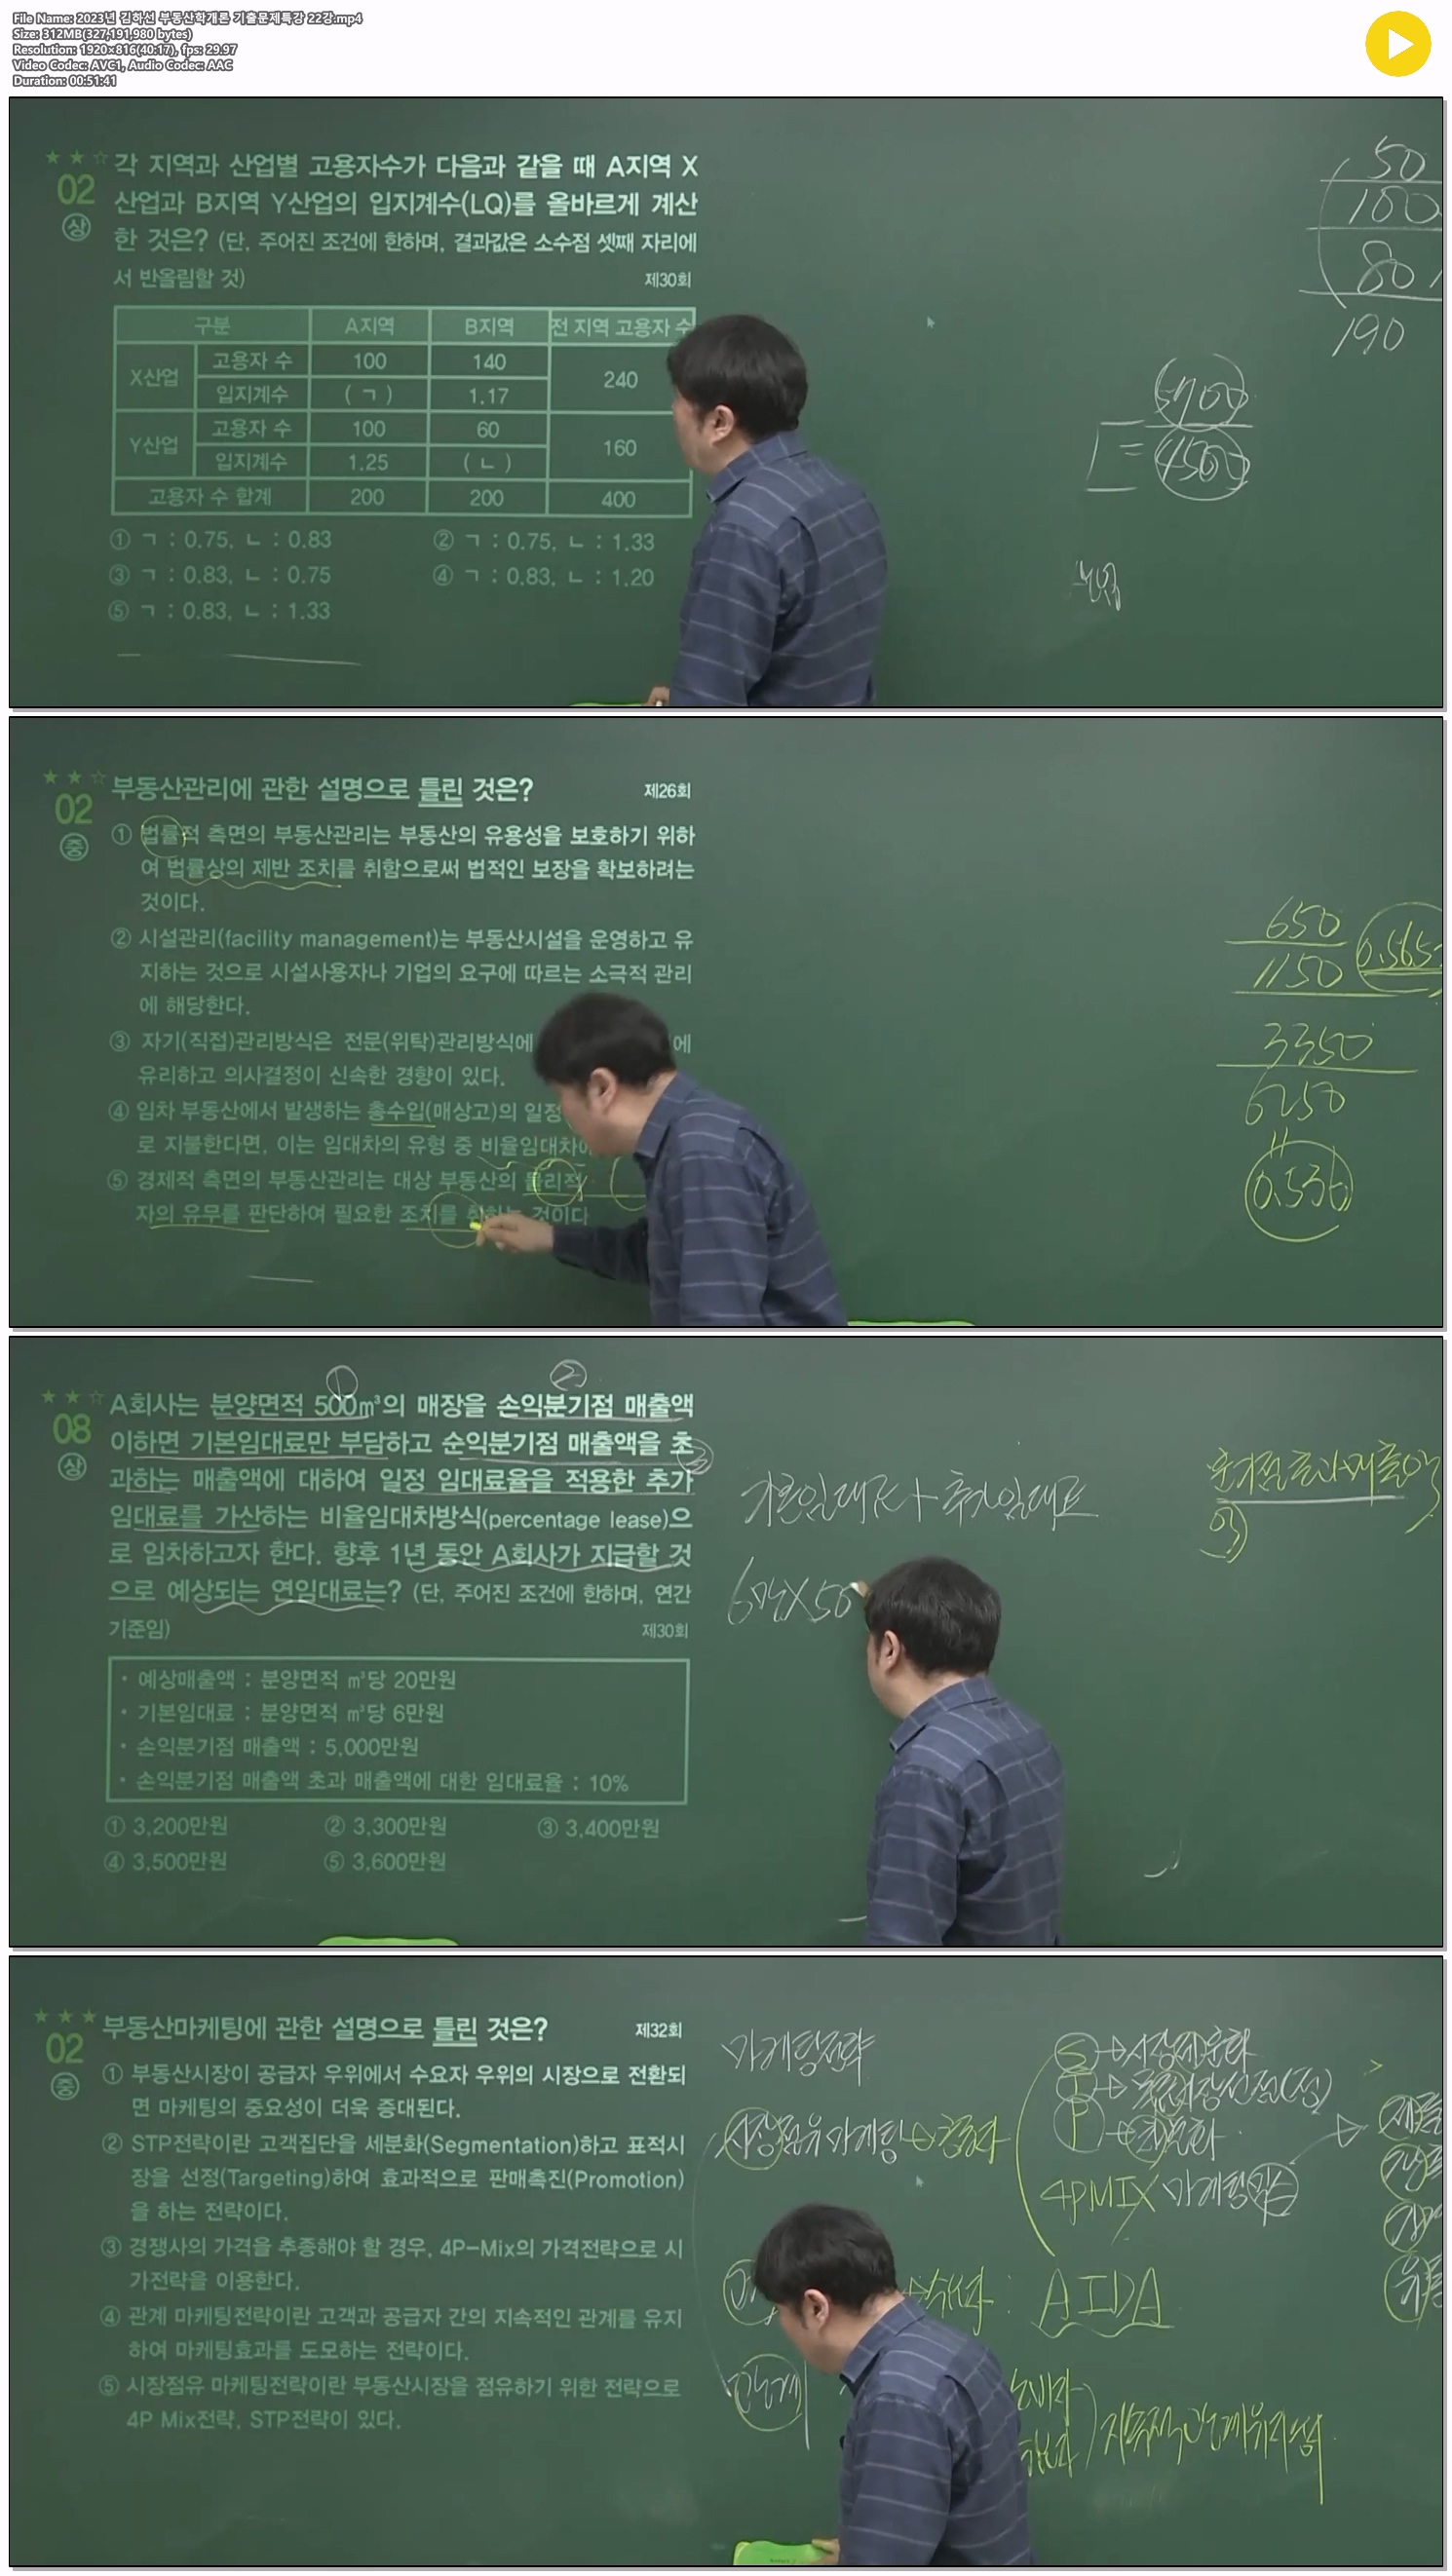 File Name: 2023년 김하선 부동산학개론 기출문제특강 22강.mp4
Size: 312MB(327,191,980 bytes)
Resolution: 1920×816(40:17), fps: 29.97
Video Codec: AVC1, Audio Codec: AAC
Duration: 00:51:41
★ ★ ☆
02
상
각 지역과 산업별 고용자수가 다음과 같을 때 A지역 X
산업과 B지역 Y산업의 입지계수(LQ)를 올바르게 계산
한 것은? (단, 주어진 조건에 한하며, 결과값은 소수점 셋째 자리에
서 반올림할 것) 제30회
구분 A지역 B지역 전 지역 고용자 수
X산업 고용자 수 100 140 240
입지계수 ( ㄱ ) 1.17
Y산업 고용자 수 100 60 160
입지계수 1.25 ( ㄴ )
고용자 수 합계 200 200 400
① ㄱ : 0.75, ㄴ : 0.83 ② ㄱ : 0.75, ㄴ : 1.33
③ ㄱ : 0.83, ㄴ : 0.75 ④ ㄱ : 0.83, ㄴ : 1.20
⑤ ㄱ : 0.83, ㄴ : 1.33
50
100
80
190
4500
★ ★ ☆
02
중
부동산관리에 관한 설명으로 틀린 것은? 제26회
① 법률적 측면의 부동산관리는 부동산의 유용성을 보호하기 위하
여 법률상의 제반 조치를 취함으로써 법적인 보장을 확보하려는
것이다.
② 시설관리(facility management)는 부동산시설을 운영하고 유
지하는 것으로 시설사용자나 기업의 요구에 따르는 소극적 관리
에 해당한다.
③ 자기(직접)관리방식은 전문(위탁)관리방식에 에
유리하고 의사결정이 신속한 경향이 있다.
④ 임차 부동산에서 발생하는 총수입(매상고)의 일정
로 지불한다면, 이는 임대차의 유형 중 비율임대차
⑤ 경제적 측면의 부동산관리는 대상 부동산의 물리적
자의 유무를 판단하여 필요한 조치를 취하는 것이다
650
1150
0.565
3350
6250
0.536
★ ★ ☆
08
상
① ②
A회사는 분양면적 500㎡의 매장을 손익분기점 매출액
이하면 기본임대료만 부담하고 손익분기점 매출액을 초
과하는 매출액에 대하여 일정 임대료율을 적용한 추가
임대료를 가산하는 비율임대차방식(percentage lease)으
로 임차하고자 한다. 향후 1년 동안 A회사가 지급할 것
으로 예상되는 연임대료는? (단, 주어진 조건에 한하며, 연간
기준임) 제30회
· 예상매출액 : 분양면적 ㎡당 20만원
· 기본임대료 : 분양면적 ㎡당 6만원
· 손익분기점 매출액 : 5,000만원
· 손익분기점 매출액 초과 매출액에 대한 임대료율 : 10%
① 3,200만원 ② 3,300만원 ③ 3,400만원
④ 3,500만원 ⑤ 3,600만원
기본임대료 + 추가임대료
6만×50
★ ★ ★
02
중
부동산마케팅에 관한 설명으로 틀린 것은? 제32회
① 부동산시장이 공급자 우위에서 수요자 우위의 시장으로 전환되
면 마케팅의 중요성이 더욱 증대된다.
② STP전략이란 고객집단을 세분화(Segmentation)하고 표적시
장을 선정(Targeting)하여 효과적으로 판매촉진(Promotion)
을 하는 전략이다.
③ 경쟁사의 가격을 추종해야 할 경우, 4P-Mix의 가격전략으로 시
가전략을 이용한다.
④ 관계 마케팅전략이란 고객과 공급자 간의 지속적인 관계를 유지
하여 마케팅효과를 도모하는 전략이다.
⑤ 시장점유 마케팅전략이란 부동산시장을 점유하기 위한 전략으로
4P Mix전략, STP전략이 있다.
마케팅전략
시장점유마케팅 → 공급자
S → 시장세분화
T → 표적시장선정(점)
P → 차별화
4PMIX 마케팅믹스
AIDA
관계